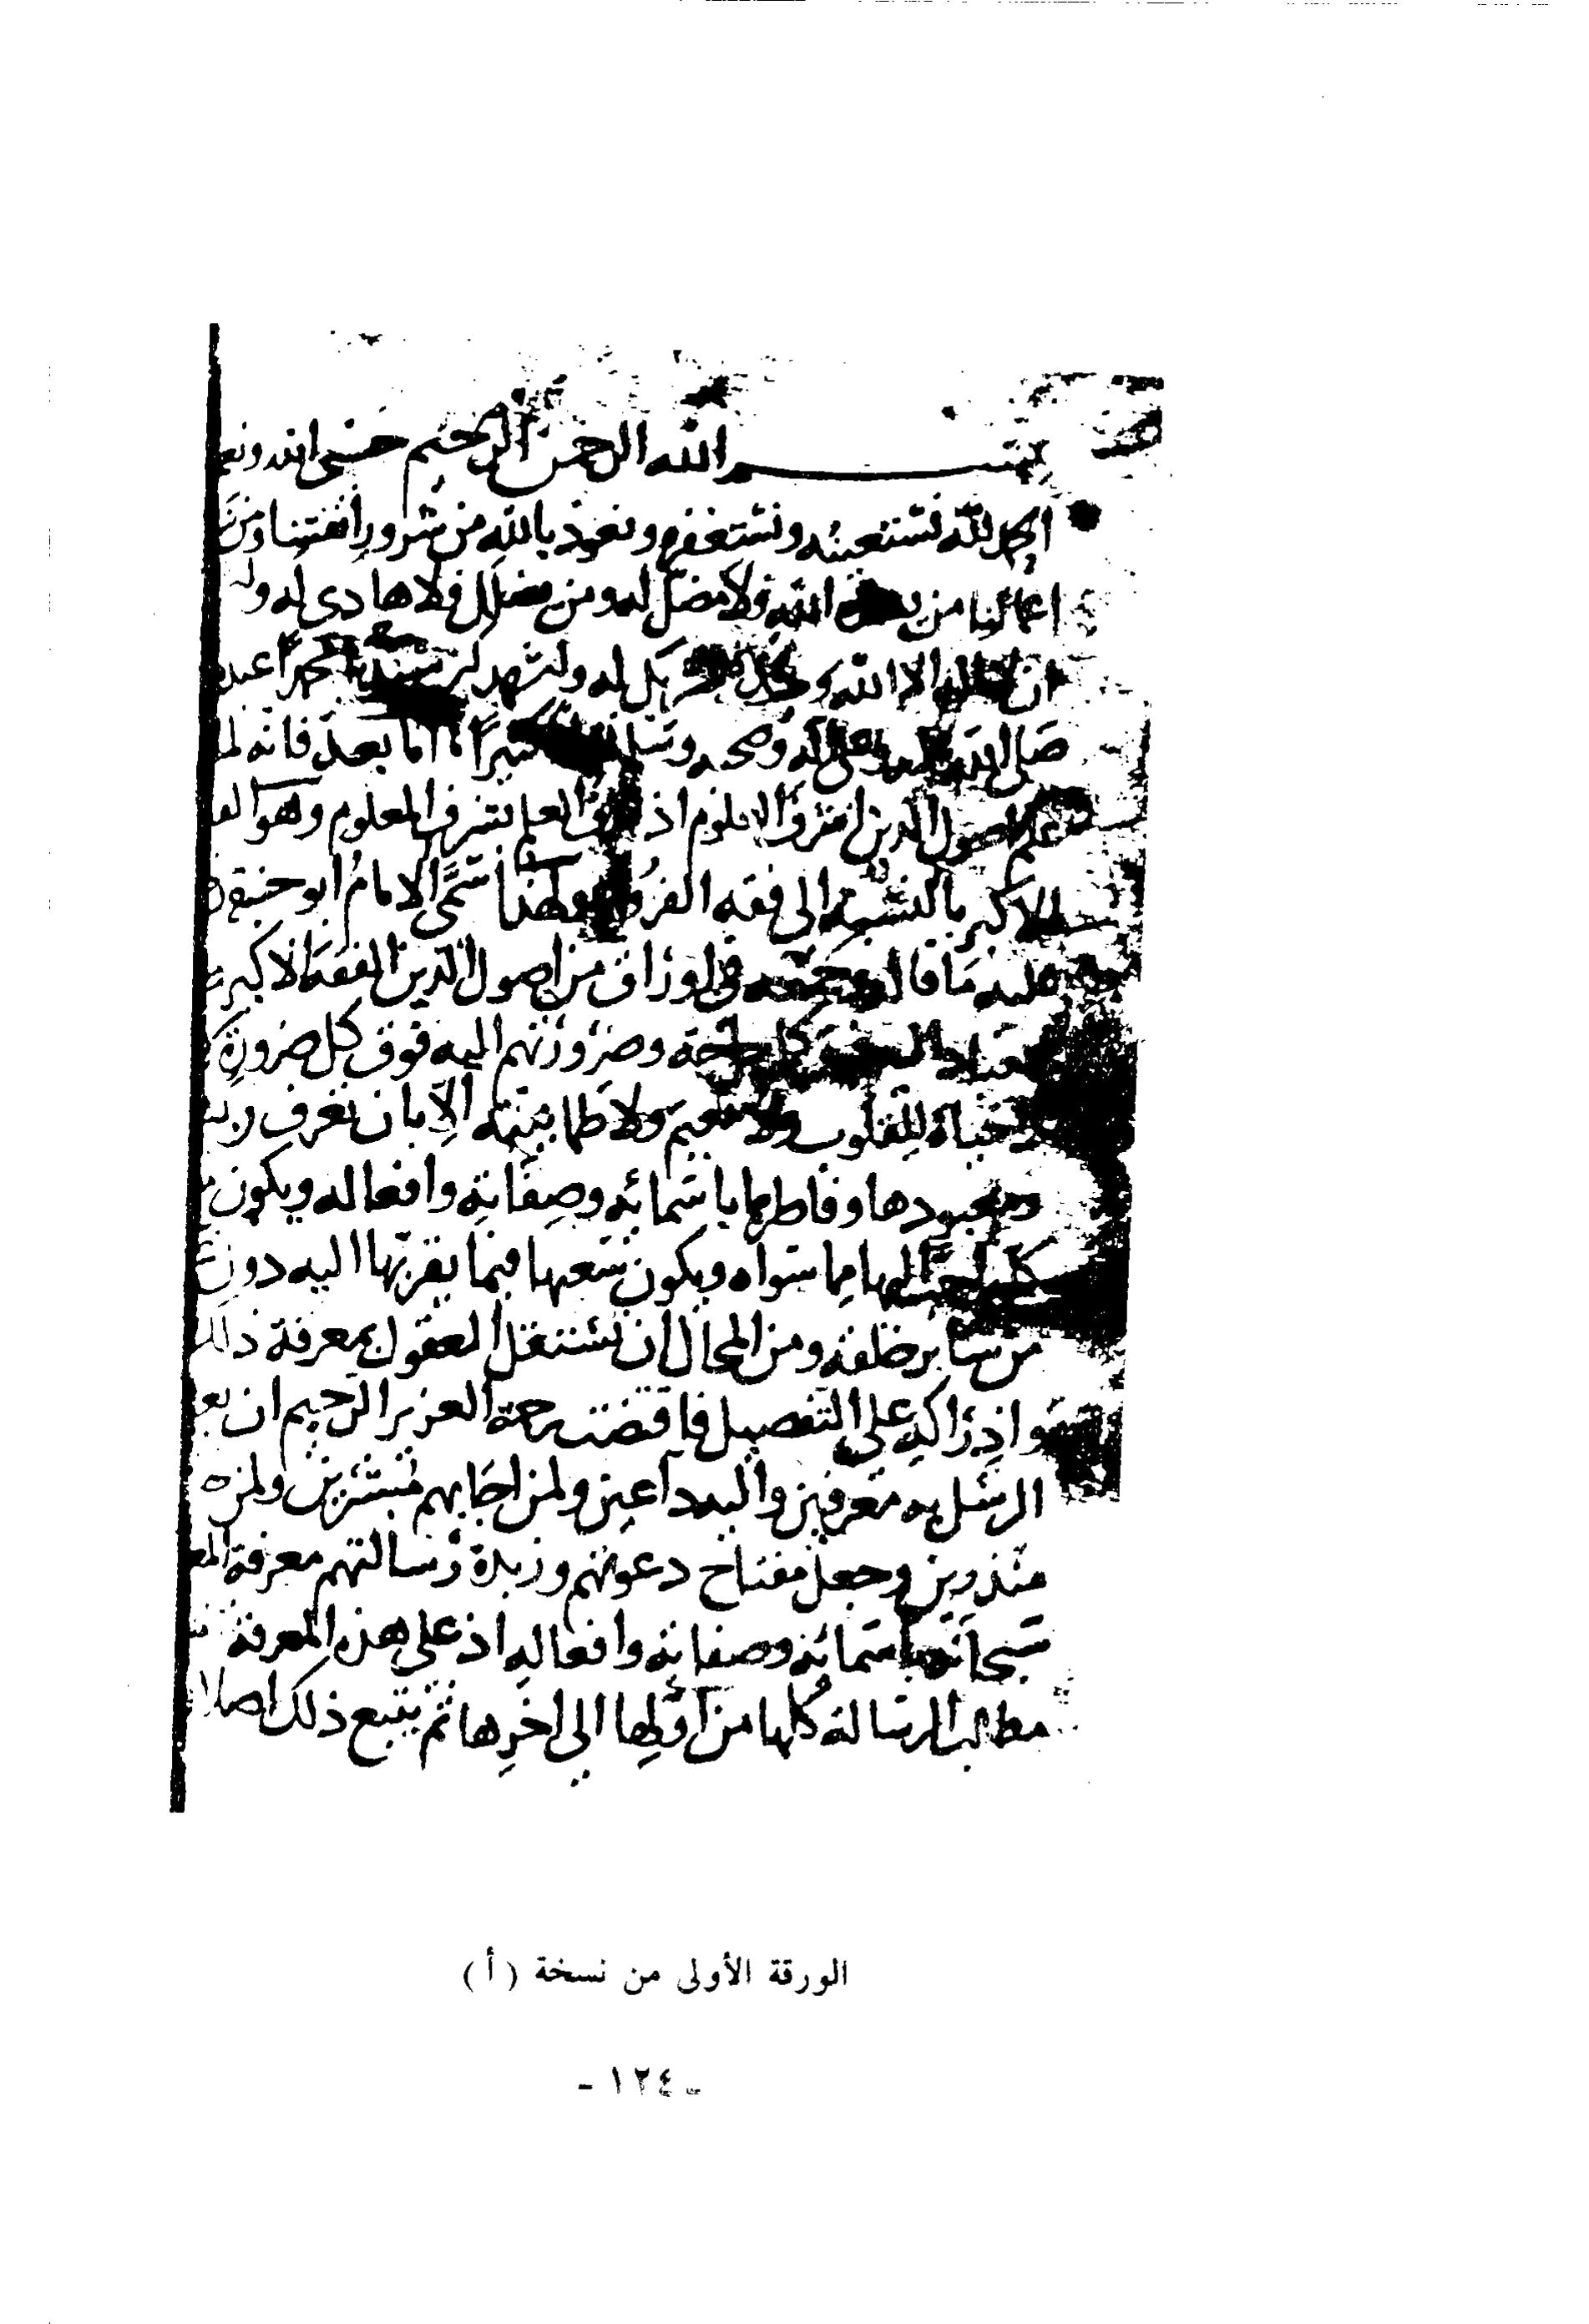 بسم الله الرحمن الرحيم حسبي الله ونعم
الحمد لله نستعينه ونستغفره ونعوذ بالله من شرور انفسنا ومن
اعمالنا من الله فلا مضل له ومن يضلل فلا هادي له
ان الا الله له ونشهد محمدا عبده
صلى الله وصحبه وسلم كثيرا اما بعد فانه لما
علم اصول الدين اشرف العلوم اذ العلم بشرف المعلوم وهو
الاكبر بالنسبة الى فقه الفروع ولهذا سمى الامام ابو حنيفة
عليه ما قاله وجمعه في اوراق من اصول الدين الفقه الاكبر
حاجة وضرورتهم اليه فوق كل ضرورة
حياة للقلوب ولا نعيم ولا طمانينة الا بان تعرف ربها
ومعبودها وفاطرها باسمائه وصفاته وافعاله ويكون
احب اليها مما سواه ويكون سعيها فيما يقربها اليه دون
من سائر خلقه ومن المحال ان تستقل العقول بمعرفة ذلك
وادراكه على التفصيل فاقتضت رحمة العزيز الرحيم ان
الرسل به معرفين واليه داعين ولمن اجابهم مبشرين ولمن
منذرين وجعل مفتاح دعوتهم وزبدة رسالتهم معرفة
سبحانه باسمائه وصفاته وافعاله اذ على هذه المعرفة
مطالب الرسالة كلها من اولها الى اخرها ثم يتبع ذلك اصلان
الورقة الأولى من نسخة (أ)
- ١٢٤ -